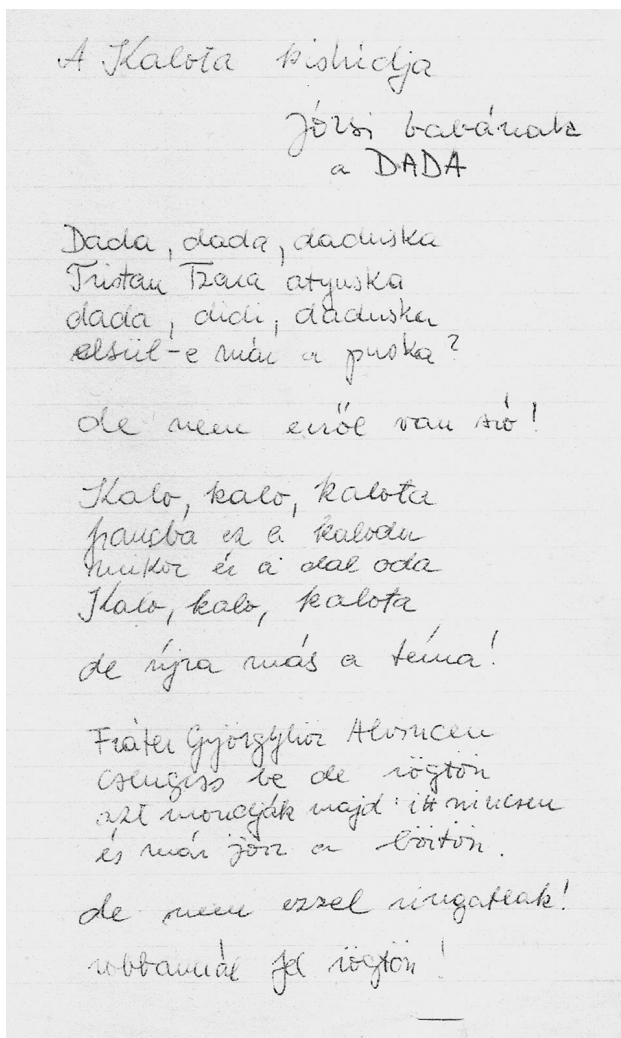 A Kalota kishídja
Józsi babának
a DADA
Dada, dada, daduska
Tristan Tzara atyuska
dada, didi, daduska
elsül-e már a puska?
de nem erről van szó!
Kalo, kalo, kalota
ez a kaloda
mikor ér a dal oda
Kalo, kalo, kalota
de újra más a téma!
Fráter Györgyhöz Alvincen
csengess be de rögtön
azt mondják majd: itt nincsen
és már jön a börtön.
de nem ezzel ringatlak!
robbannál fel rögtön!